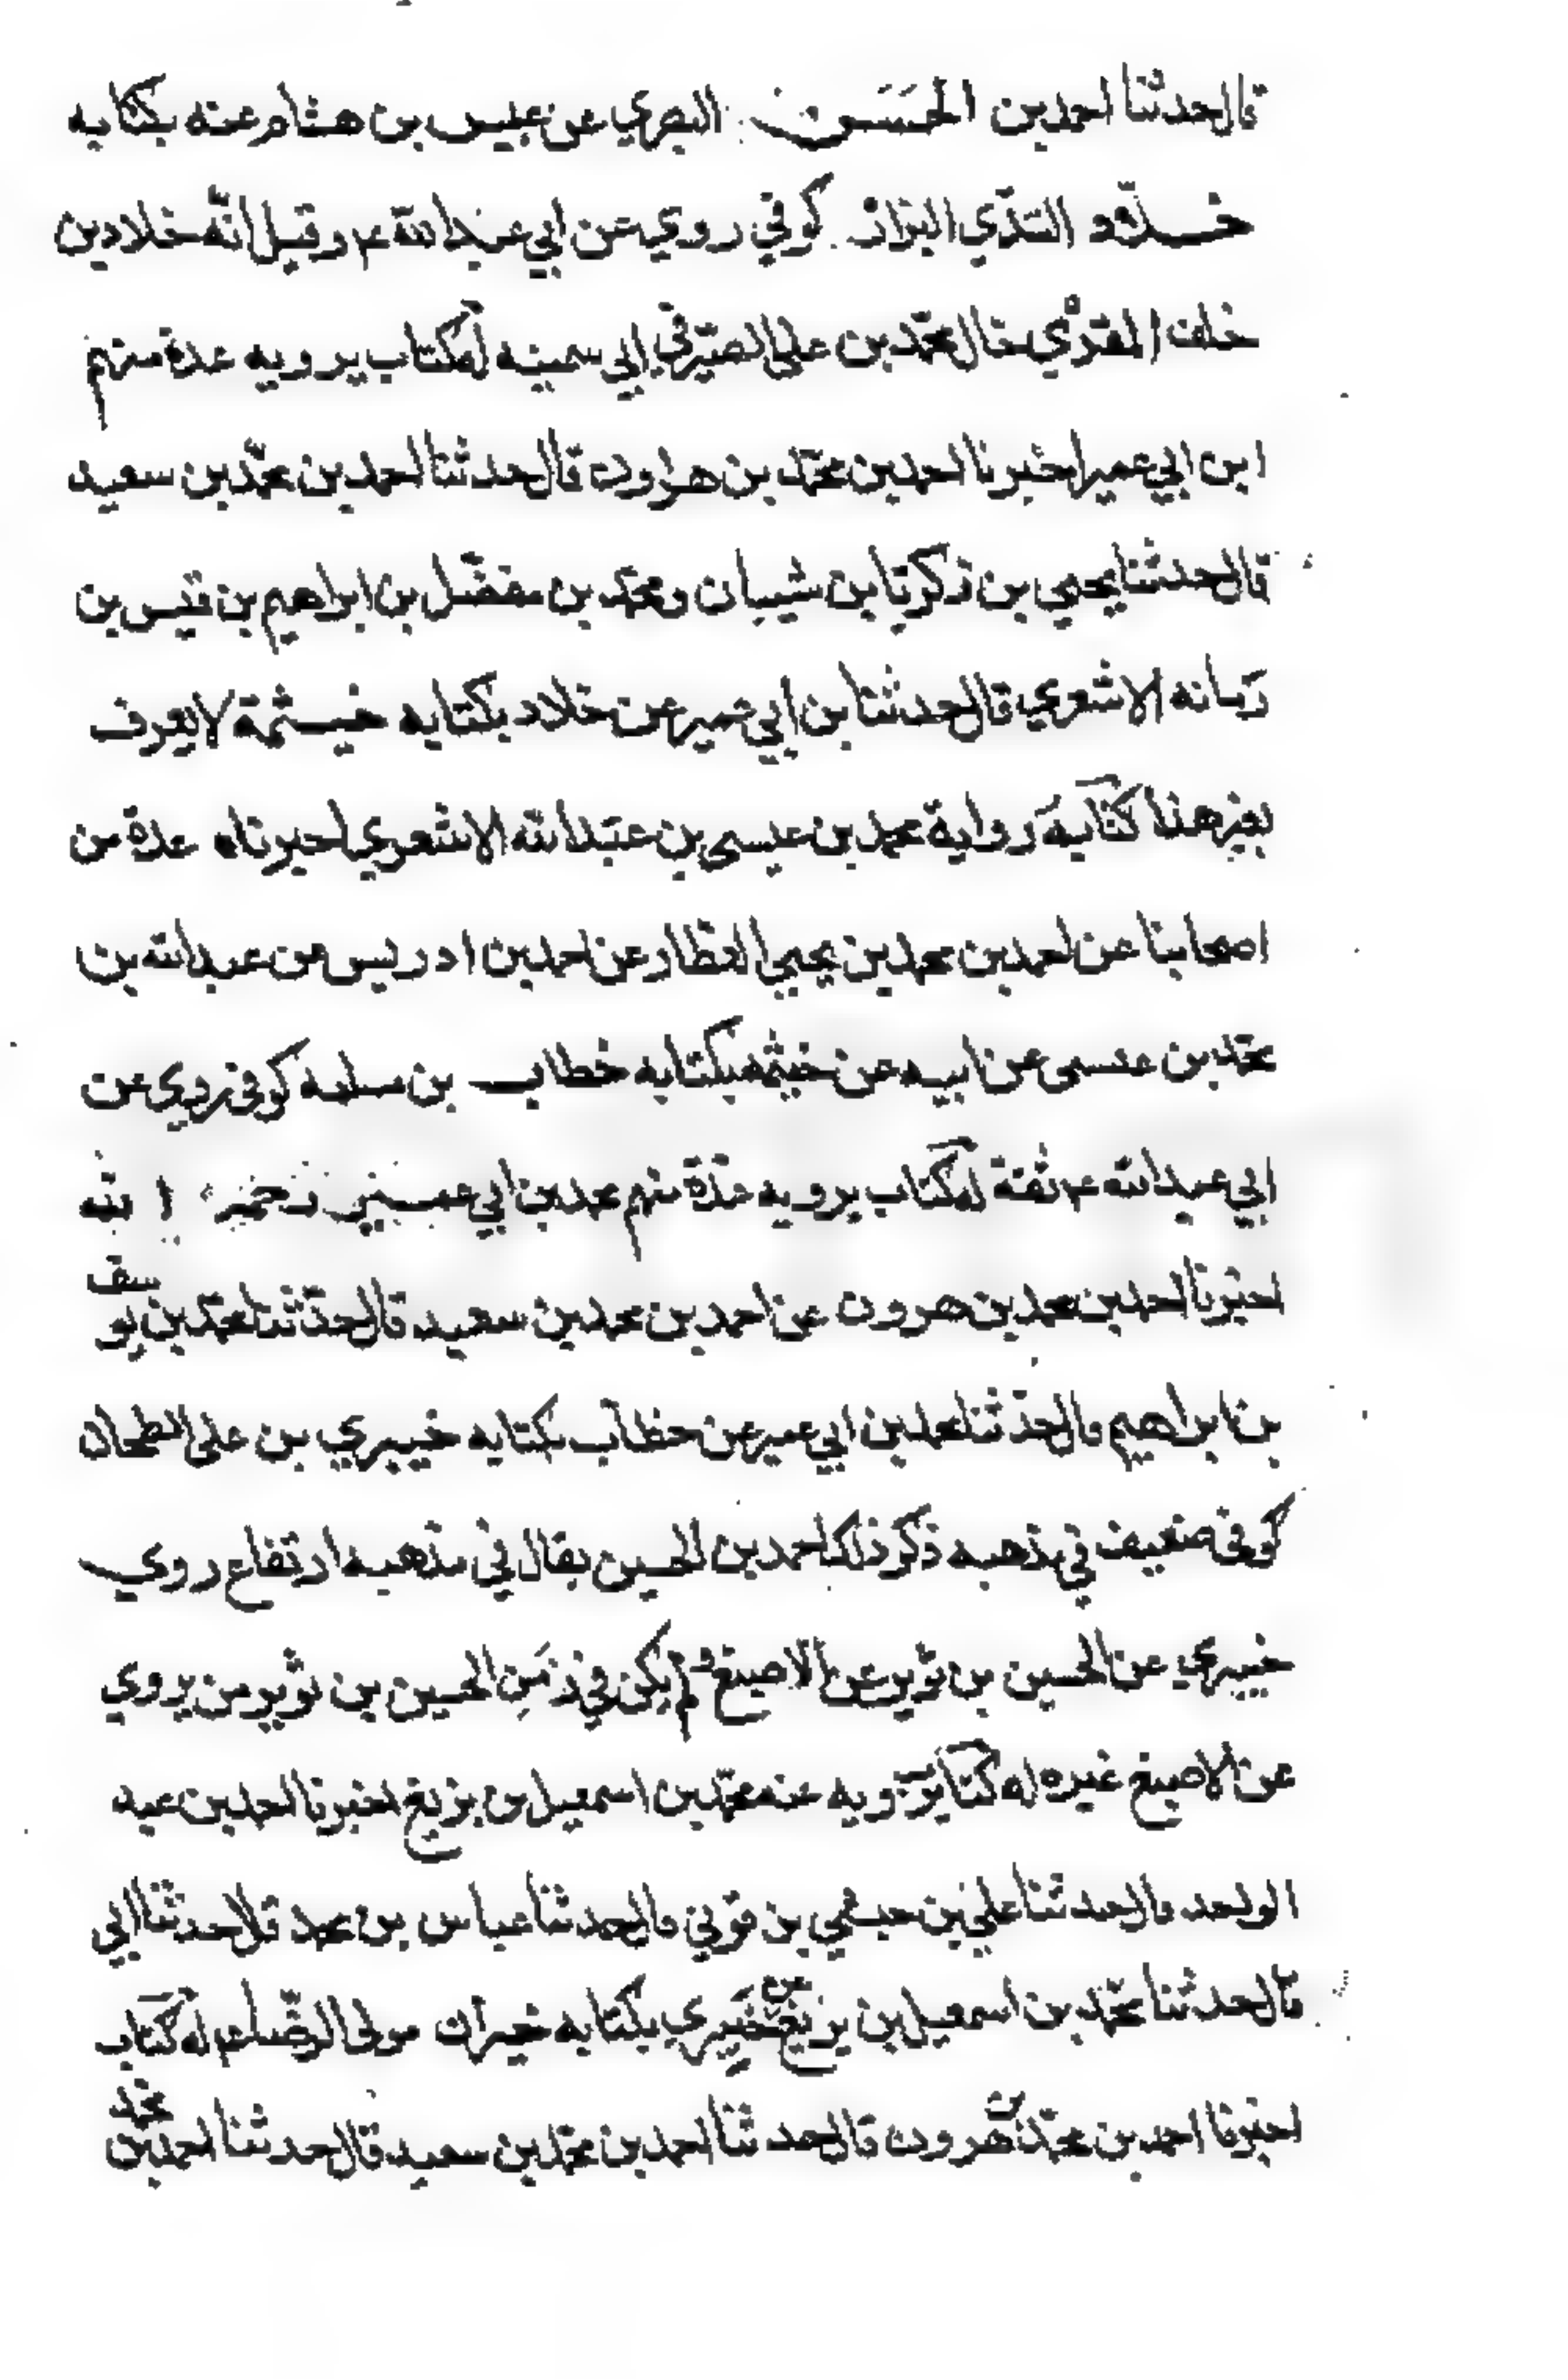 قال حدثنا احمد بن الحَسَن البصري عن عبيس بن هشام عنه بكتابه
خلاد السّدّي البزاز كوفي روي عن ابي عبد الله ع وقيل انّه خلاد بن
خلف المقرْي خال محمّد بن علي الصيّرفي ابي سمينه له كتاب يرويه عدة منهم
ابن ابي عمير اخبرنا احمد بن محمّد بن هراون قال حدثنا احمد بن محمّد بن سعيد
قال حدثنا يحيي بن زكريّا بن شيبان ومحمّد بن مفضّل بن ابراهيم بن قيس بن
رمّانه الاشعري قال حدثنا بن ابي عمير عن خلاد بكتابه خيثمة لا يعرف
بغير هذا كتابه رواية محمد بن عيسى بن عبد الله الاشعري اخبرناه عدة من
اصحابنا عن احمد بن محمد بن يحيي العطار عن احمد بن ادريس عن عبد الله بن
محمّد بن عيسى عن ابيه عن خيثمه بكتابه خطاب بن مسلمه كوفي روي عن
ابي عبد الله ع ثقة له كتاب يرويه عدّة منهم محمد بن ابي عمير
اخبرنا احمد بن محمد بن هرون عن احمد بن محمد بن سعيد قال حدّثنا محمّد بن يوسف
بن ابراهيم قال حدّثنا محمد بن ابي عمير عن خطاب بكتابه خيبري بن علي الطحان
كوفي ضعيف في مذهبه ذكر ذلك احمد بن الحسين يقال في مذهبه ارتفاع روي
خيبري عن الحسين بن ثوير عن الاصبغ و لم يكن في زمَنِ الحسين بن ثوير من يروي
عن الاصبغ غيره له كتاب يرويه عنه محمّد بن اسمعيل بن بزيع اخبرنا احمد بن عبد
الواحد قال حدثنا علي بن حبشي بن قوني قال حدثنا عباس بن محمد قال حدثنا ابي
قال حدثنا محمّد بن اسمعيل بن بزيع عن خيبري بكتابه خيران مولى الرضّا ع له كتاب
اخبرنا احمد بن محمّد بن هرون قال حدثنا احمد بن محمّد بن سعيد قال حدثنا احمد بن محمّد